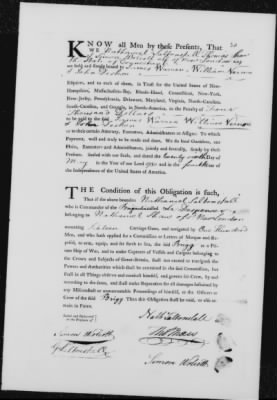 KNOW all Men by these Presents, That
we Nathanael Saltonstall & Thomas Shaw
the State of Connecticut
are held and firmly bound to James Warren, William Vernon
& John Deshon
Esquires, and to each of them, in Trust for the United States of New-
Hampshire, Massachusetts-Bay, Rhode-Island, Connecticut, New-York,
New-Jersey, Pennsylvania, Delaware, Maryland, Virginia, North-Carolina,
South-Carolina, and Georgia, in North-America, in the Penalty of
Thousand Dollars
to be paid to the said James Warren William Vernon
& John Deshon
or to their certain Attorney, Executors, Administrators or Assigns: To which
Payment, well and truly to be made and done, We do bind ourselves, our
Heirs, Executors and Administrators, jointly and severally, firmly by these
Presents. Sealed with our Seals, and dated the Day of
May in the Year of our Lord 1780 and in the fourth of
the Independence of the United States of America.
THE Condition of this Obligation is such,
That if the above bounden Nathanael Saltonstall
who is Commander of the Brigantine called
belonging to Nathaniel Shaw of New London
mounting Sixteen Carriage Guns, and navigated by One Hundred
Men, and who hath applied for a Commission or Letters of Marque and Re-
prisal, to arm, equip, and set forth to Sea, the said Brigg as a Pri-
vate Ship of War, and to make Captures of Vessels and Cargoes belonging to
the Crown and Subjects of Great-Britain, shall not exceed or transgress the
Powers and Authorities which shall be contained in the said Commission, but
shall in all Things observe and conduct himself, and govern his Crew, by and
according to the same, and shall make Reparation for all damages sustained by
any Misconduct or unwarrantable Proceedings of himself, or the Officers or
Crew of the said Brigg Then this Obligation shall be void, or else re-
main in Force.
Sealed and Delivered
in the Presence of
Nathl Saltonstall
Thos Shaw
Simeon Wolcott